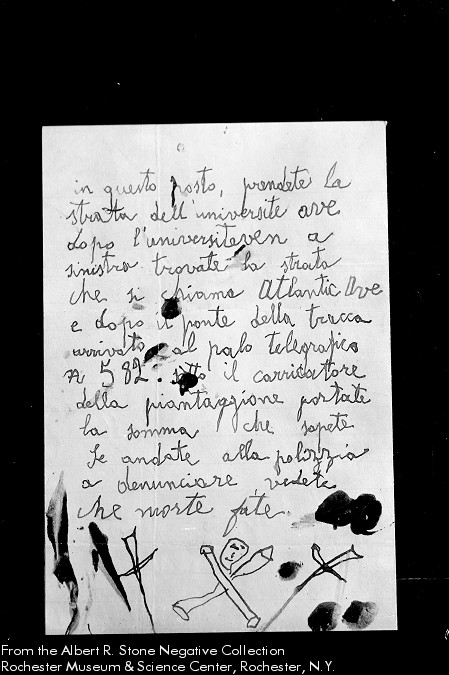 in questo posto, prendete la
strata dell'universite ave
dopo l'universiteven a
sinistra trovate la strata
che si chiama Atlantic Ave
e dopo il ponte della tracca
arrivato al palo telegrafico
N 582. sotto il carricatore
della piantaggione portate
la somma che sapete
Se andate alla polizzia
a denunciare vedete
che morte fate.
From the Albert R. Stone Negative Collection
Rochester Museum & Science Center, Rochester, N.Y.